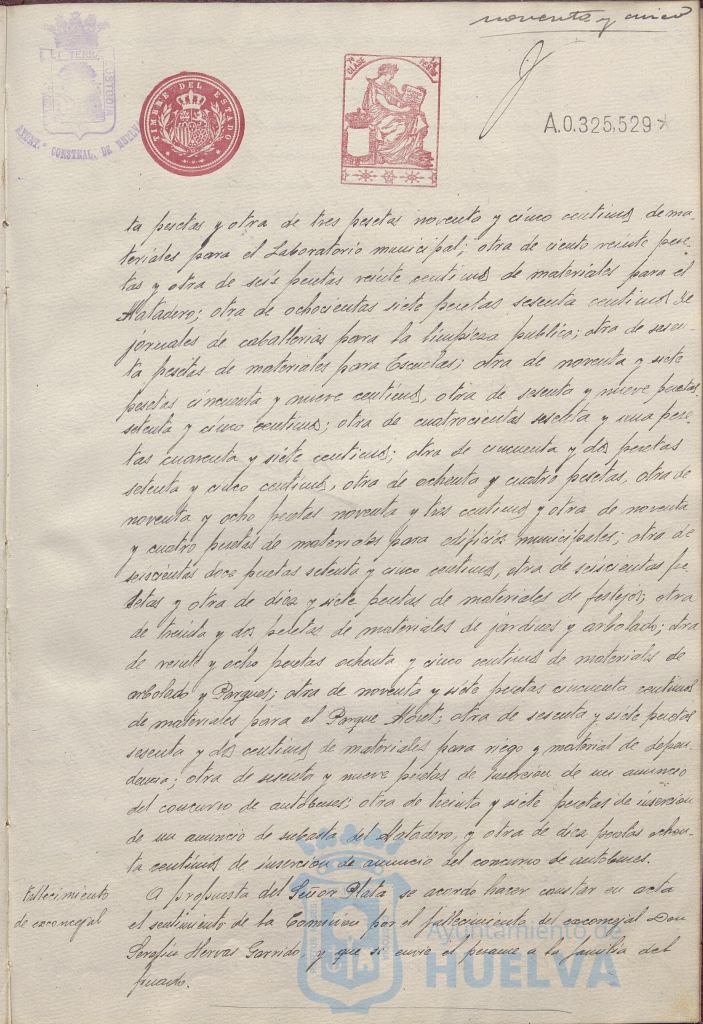 noventa y cinco
TIMBRE DEL ESTADO
CLASE
A.0.325,529*
AYUNT. CONSTNAL. DE HUELVA
ta pesetas y otra de tres pesetas noventa y cinco centimos de ma-
teriales para el Laboratorio municipal; otra de ciento veinte pese-
tas y otra de seis pesetas veinte centimos de materiales para el
Matadero; otra de ochocientas siete pesetas sesenta centimos de
jornales de caballerias para la limpieza publica; otra de sesen-
ta pesetas de materiales para Escuelas; otra de noventa y siete
pesetas cincuenta y nueve centimos, otra de sesenta y nueve pesetas
setenta y cinco centimos; otra de cuatrocientas sesenta y una pese-
tas cuarenta y siete centimos; otra de cincuenta y dos pesetas
setenta y cinco centimos, otra de ochenta y cuatro pesetas, otra de
noventa y ocho pesetas noventa y tres centimos y otra de noventa
y cuatro pesetas de materiales para edificios municipales; otra de
seiscientas doce pesetas setenta y cinco centimos, otra de seiscientas pe-
setas y otra de diez y siete pesetas de materiales de festejos; otra
de treinta y dos pesetas de materiales de jardines y arbolado; otra
de veinte y ocho pesetas ochenta y cinco centimos de materiales de
arbolado y Parques; otra de noventa y siete pesetas cincuenta centimos
de materiales para el Parque Moret; otra de sesenta y siete pesetas
sesenta y dos centimos de materiales para riego y material de depen-
dencia; otra de sesenta y nueve pesetas de insercion de un anuncio
del concurso de autobuses; otra de treinta y siete pesetas de insercion
de un anuncio de subasta del Matadero, y otra de diez pesetas ochen-
ta centimos de insercion de anuncio del concurso de autobuses.
Fallecimiento
de exconcejal
A propuesta del Señor Plata se acordo hacer constar en acta
el sentimiento de la Comision por el fallecimiento del exconcejal Don
Serafin Hervas Garrido, y que se envie el pesame a la familia del
finado.
Ayuntamiento de
HUELVA